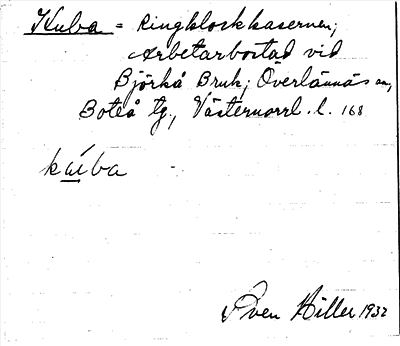 Kuba = Ringklockkasernen;
Arbetarbostad vid
Björkå Bruk; Överlännäs sn,
Boteå tg., Västernorrl. l. 168
kúba
Sven Hiller 1932